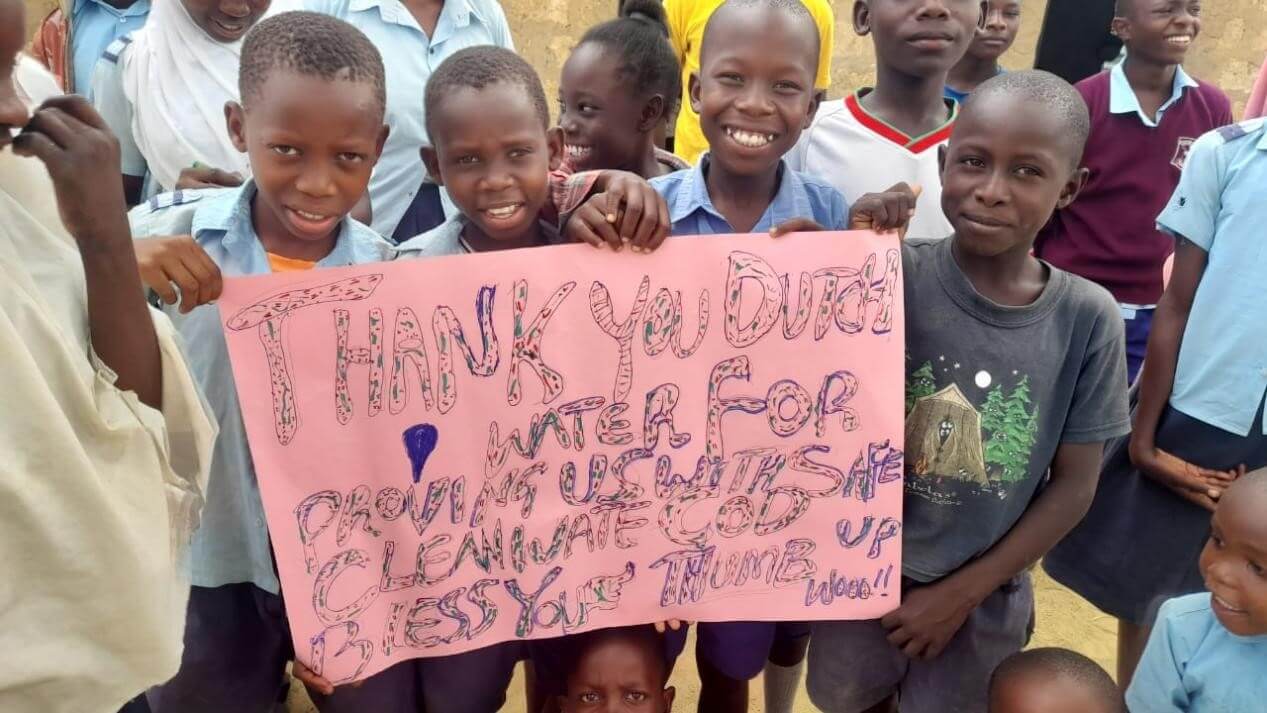 THANK YOU DUTCH
WATER FOR
PROVING US WITH SAFE
CLEAN WATE GOD
BLESS YOU THUMB UP
WOOO!!